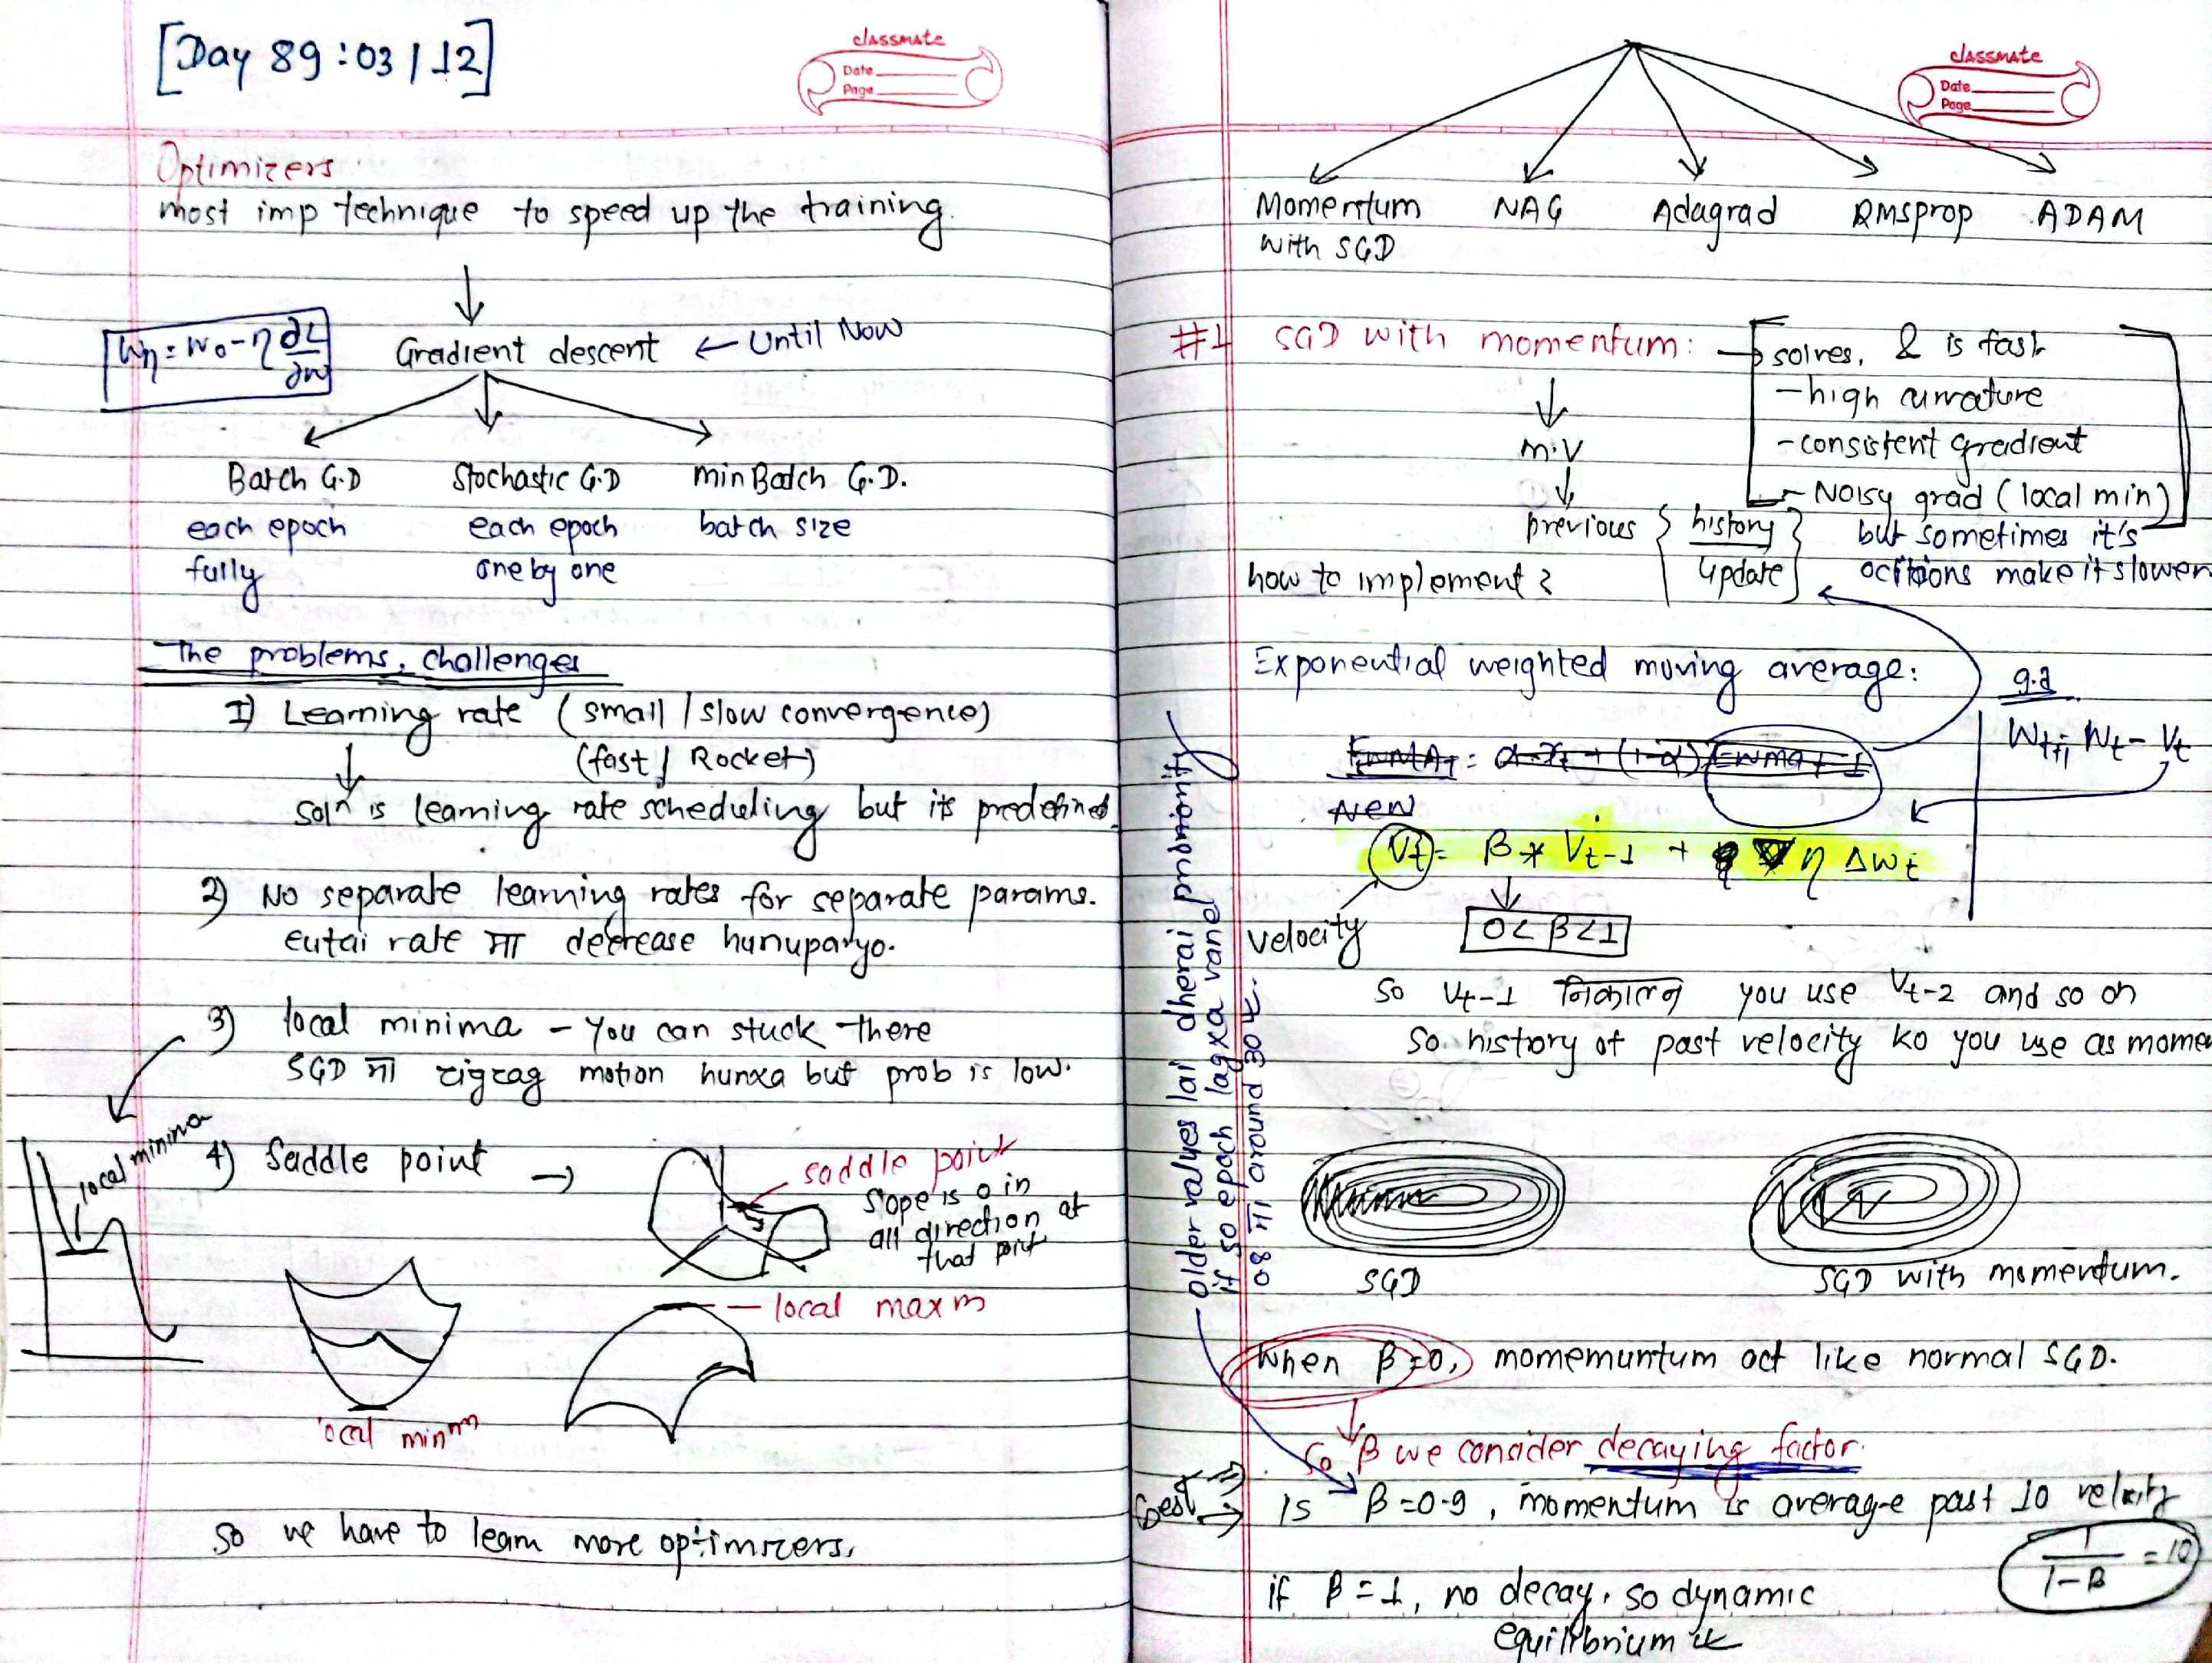 [Day 89 : 03/12]
classmate
Date
Page
Optimizers
most imp technique to speed up the training.
Wη = Wo - η ∂L/∂w
Gradient descent ← Until Now
Batch G.D Stochastic G.D min Batch G.D.
each epoch each epoch batch size
fully one by one
The problems, challenges
1) Learning rate (small / slow convergence)
(fast / Rocket)
solⁿ is learning rate scheduling but its predefined.
2) No separate learning rates for separate params.
eutai rate मा decrease hunuparyo.
3) local minima - you can stuck there
SGD मा zigzag motion hunxa but prob is low.
local minima
4) Saddle point →
saddle point
slope is 0 in
all direction at
that point
local minᵐ
local maxm
so we have to learn more optimizers,
classmate
Date
Page
Momentum NAG Adagrad RMSprop ADAM
with SGD
#1 SGD with momentum: → solves, & is fast
- high curvature
m·v
- consistent gradient
- Noisy grad (local min)
previous { history
update }
but sometimes it's
make it slower
how to implement ?
Exponential weighted moving average:
g.d
EWMAt = α xt + (1-α) EWMAt-1
Wt+1 Wt - Vt
New
Vt = β * Vt-1 + η Δwt
velocity
0 < β < 1
so Vt-1 निकाल्न you use Vt-2 and so on
so history of past velocity ko you use as mome
older values lai dherai
it so epoch lagxa vane
08 मा around 30
SGD
SGD with momentum.
when β=0, momemuntum act like normal SGD.
so β we consider decaying factor.
Best → is β = 0.9, momentum is average past 10 velocity
1/1-β = 10
if β = 1, no decay. so dynamic
equilibrium